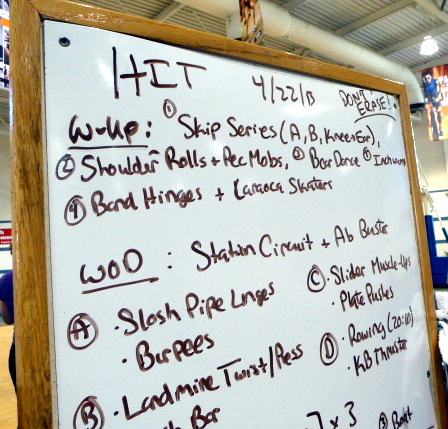 HIT 4/22/13 DON'T ERASE!
W-Up: ① Skip Series (A, B, Knee+Ear),
② Shoulder Rolls + Pec Mobs, ③ Bear Dance ④ Inchworm
④ Band Hinges + Carioca Skaters
WOD : Station Circuit + Ab Buster
Ⓐ · Slosh Pipe Lunges
· Burpees
Ⓑ · Landmine Twist/Press
Bar
Ⓒ · Slider Muscle-Ups
· Plate Pushes
Ⓓ · Rowing (20:10)
· KB Thruster
7 x 3